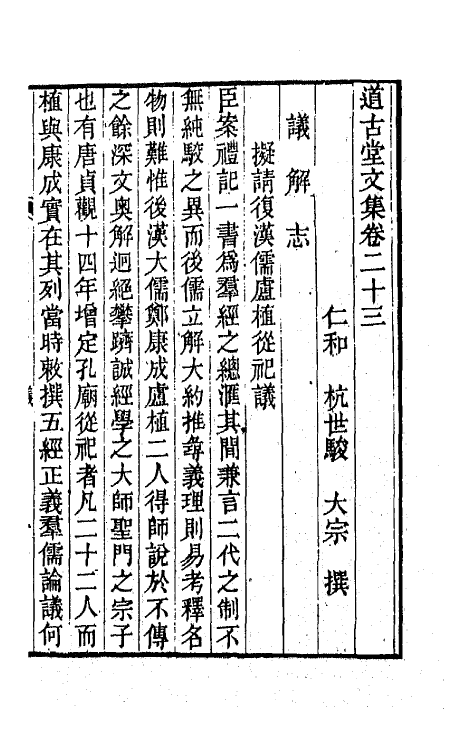 道古堂文集卷二十三
仁和　杭世駿　大宗　撰
議　解　志
擬請復漢儒盧植從祀議
臣案禮記一書爲羣經之總滙其間兼言二代之制不
無純駮之異而後儒立解大約推尋義理則易考釋名
物則難惟後漢大儒鄭康成盧植二人得師說於不傳
之餘深文奧解迥絕攀躋誠經學之大師聖門之宗子
也有唐貞觀十四年增定孔廟從祀者凡二十二人而
植與康成實在其列當時敕撰五經正義羣儒論議何